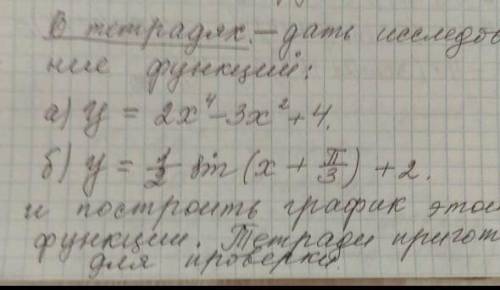 В тетрадях. – дать исследов
ние функций:
а) y = 2x⁴-3x²+4.
б) y = 1/2 sin (x + π/3) + 2.
и построить график этой
функции. Тетради пригот
для проверки.